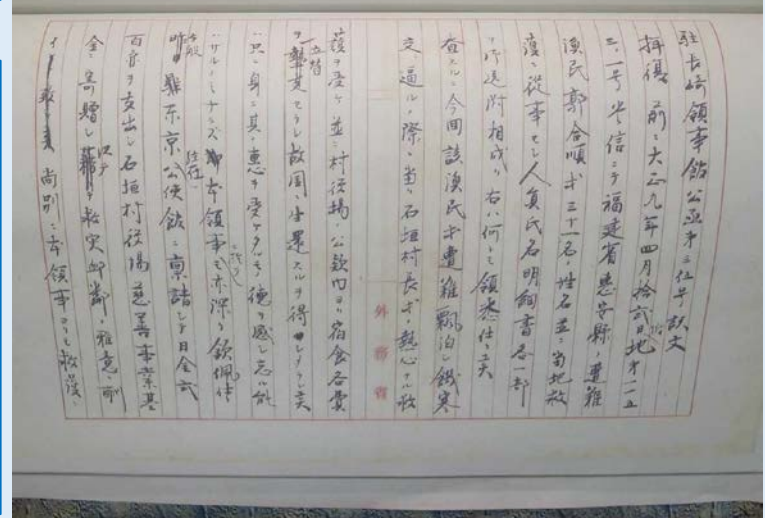 駐長崎領事館公函第三拾号訳文
拝復 前ニ大正九年四月拾弐日附地第一一五
三、一号貴信ニテ福建省恵安縣ノ遭難
漁民郭合順等三十一名ノ姓名並ニ当地救
護ニ従事セシ人員氏名明細書各一部
御送附相成リ右ハ何レモ領悉仕候
査スルニ今回該漁民等遭難飄泊シ餓寒
交ニ逼ルノ際ニ当リ石垣村長等ノ熱心ナル救
外務省
護ヲ受ケ並ニ村役場ノ公欵内ヨリ宿食各費
ヲ立替セラレ故国ニ生還スルヲ得
只ニ身ニ其ノ恵ヲ受ケタルモノ徳ヲ感シ忘ル能
ハサルノミナラズ本領事モ亦深ク欽佩仕
在東京公使館ニ稟請シ日金弐
百円ヲ支出シ石垣村役場慈善事業基
金ニ寄贈シ以テ救災卹鄰ノ雅意
尚別ニ本領事ヨリモ救護